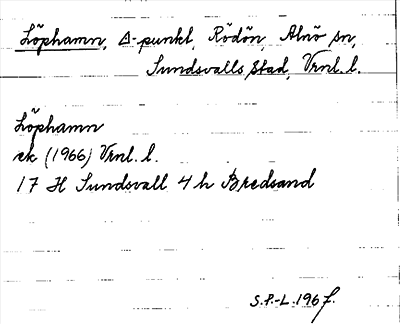 Löphamn, Δ-punkt, Rödön, Alnö sn,
Sundsvalls stad, Vrnl. l.
Löphamn
ek (1966) Vrnl. l.
17 H Sundsvall 4 h Bredsand
S.P.-L. 1967.